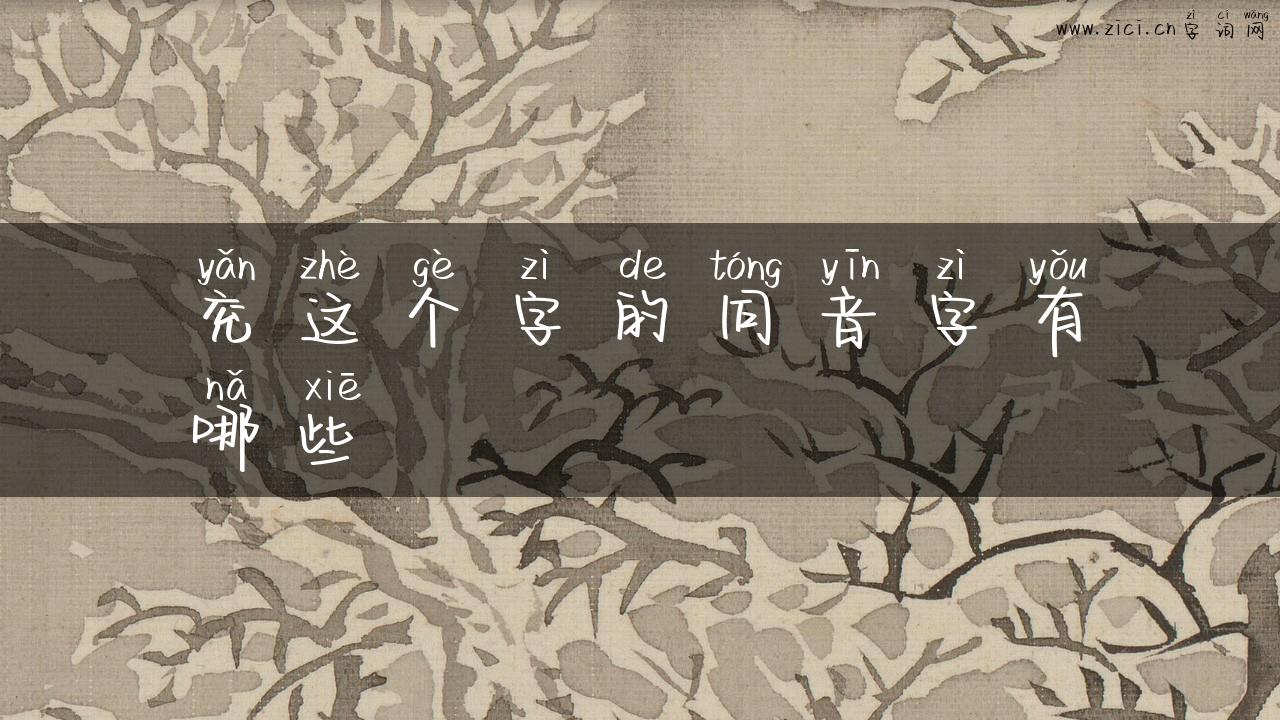 zì cí wǎng
www.zici.cn 字词网
yǎn zhè gè zì de tóng yīn zì yǒu
兖这个字的同音字有
nǎ xiē
哪些